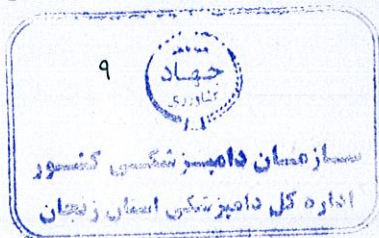 ۹
جهاد
کشاورزی
سازمان دامپزشکی کشور
اداره کل دامپزشکی استان زنجان